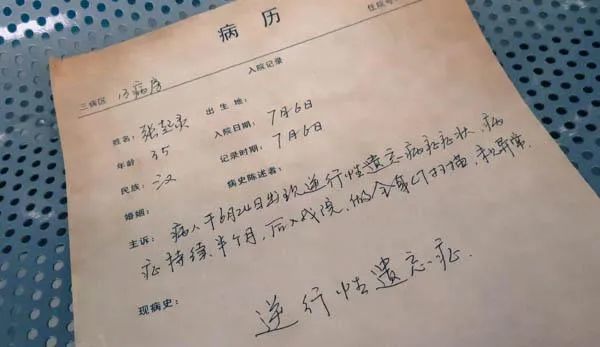 病历
住院号
入院记录
三病区 13病房
姓名: 张起灵 出生地:
年龄 35 入院日期: 7月6日
民族: 汉 记录时期: 7月6日
婚姻: 病史陈述者:
主诉: 病人于6月24日出现逆行性遗忘病症症状,病
症持续半个月,后入我院,做全身CT扫描,未见异常.
现病史: 逆行性遗忘症.